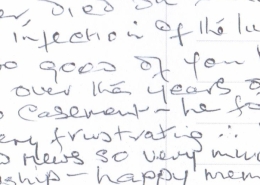 died
infection of the lu
good of you
over the years o
Casement - he fo
ery frustrating ...
news so very muc
ship - happy mem